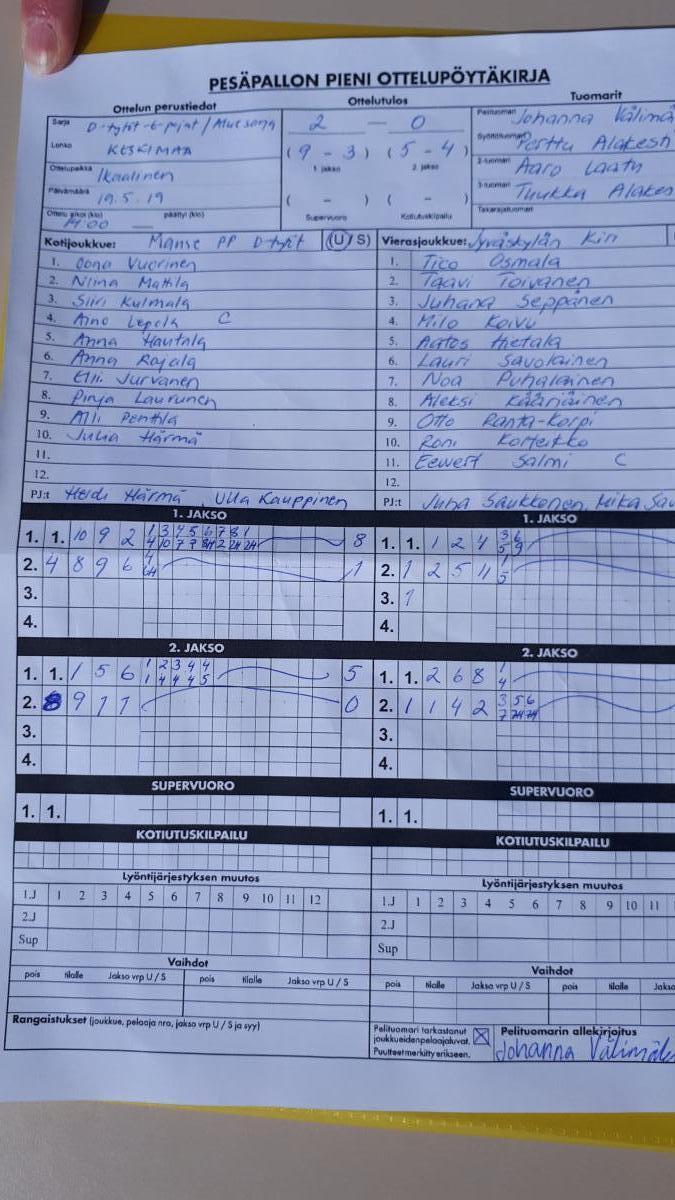 PESÄPALLON PIENI OTTELUPÖYTÄKIRJA
Ottelun perustiedot
Ottelutulos
Tuomarit
Sarja D-tytöt-E-pojat / Aluesarja
Lohko KESKIMAA
Ottelupaikka Ikaalinen
Päivämäärä 19.5.19
Ottelu alkoi (klo) 14.00 päättyi (klo)
2 - 0
(9 - 3) (5 - 4)
1. jakso 2. jakso
( - ) ( - )
Supervuoro Kotiutuskilpailu
Pelituomari Johanna Välimä
Syöttötuomari Perttu Alakesti
2-tuomari Aaro Laatu
3-tuomari Tuukka Alakes
Takarajatuomari
Kotijoukkue: Manse PP D-tytöt (U/S)
1. Oona Vuorinen
2. Niina Mattila
3. Siiri Kulmala
4. Aino Lepola C
5. Anna Hautala
6. Anna Rajala
7. Elli Jurvanen
8. Pinja Laurunen
9. Alli Penttilä
10. Julia Härmä
11.
12.
PJ:t Heidi Härmä, Ulla Kauppinen
Vierasjoukkue: Jyväskylän Kiri
1. Tico Osmala
2. Taavi Toivanen
3. Juhana Seppänen
4. Milo Koivu
5. Aatos Hietala
6. Lauri Savolainen
7. Noa Puhalainen
8. Aleksi Kääriäinen
9. Otto Ranta-Korpi
10. Roni Korteikko
11. Eewert Salmi C
12.
PJ:t Juha Saukkonen, Mika Sau
1. JAKSO
1. 1. 10 9 2 1 3 4 5 6 7 8 1 8
2. 4 8 9 6 4 1
3.
4.
1. JAKSO
1. 1. 1 2 4 3 6
5 9
2. 1 2 5 11 1
5
3. 1
4.
2. JAKSO
1. 1. 1 5 6 1 2 3 4 4 5
1 4 4 4 5
2. 9 1 1 0
3.
4.
2. JAKSO
1. 1. 2 6 8 1
4
2. 1 1 4 2 3 5 6
7
3.
4.
SUPERVUORO
1. 1.
SUPERVUORO
1. 1.
KOTIUTUSKILPAILU
KOTIUTUSKILPAILU
Lyöntijärjestyksen muutos
1.J 1 2 3 4 5 6 7 8 9 10 11 12
2.J
Sup
Lyöntijärjestyksen muutos
1.J 1 2 3 4 5 6 7 8 9 10 11
2.J
Sup
Vaihdot
pois tilalle Jakso vrp U / S pois tilalle Jakso vrp U / S
Vaihdot
pois tilalle Jakso vrp U / S pois tilalle Jakso
Rangaistukset (joukkue, pelaaja nro, jakso vrp U / S ja syy)
Pelituomari tarkastanut
joukkueiden pelaajaluvat.
Puutteet merkitty erikseen.
Pelituomarin allekirjoitus
Johanna Välimäk